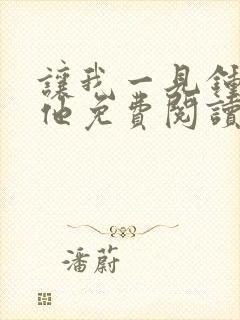 讓我一見鍾
他免費閱讀
潘蔚